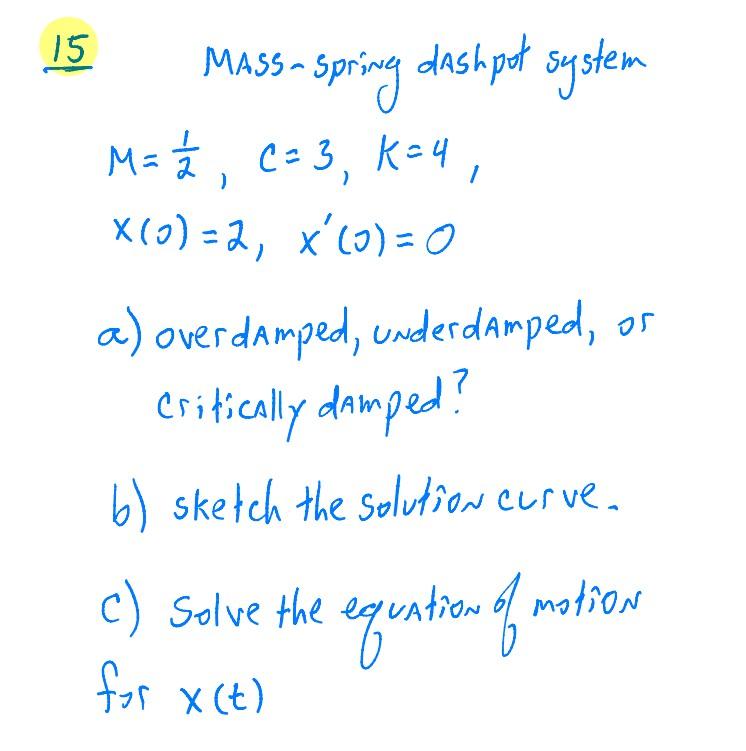 15
MASS-spring dashpot system
M = 1/2, C = 3, K = 4,
x(0) = 2, x'(0) = 0
a) overdamped, underdamped, or
critically damped?
b) sketch the solution curve.
c) Solve the equation of motion
for x(t)